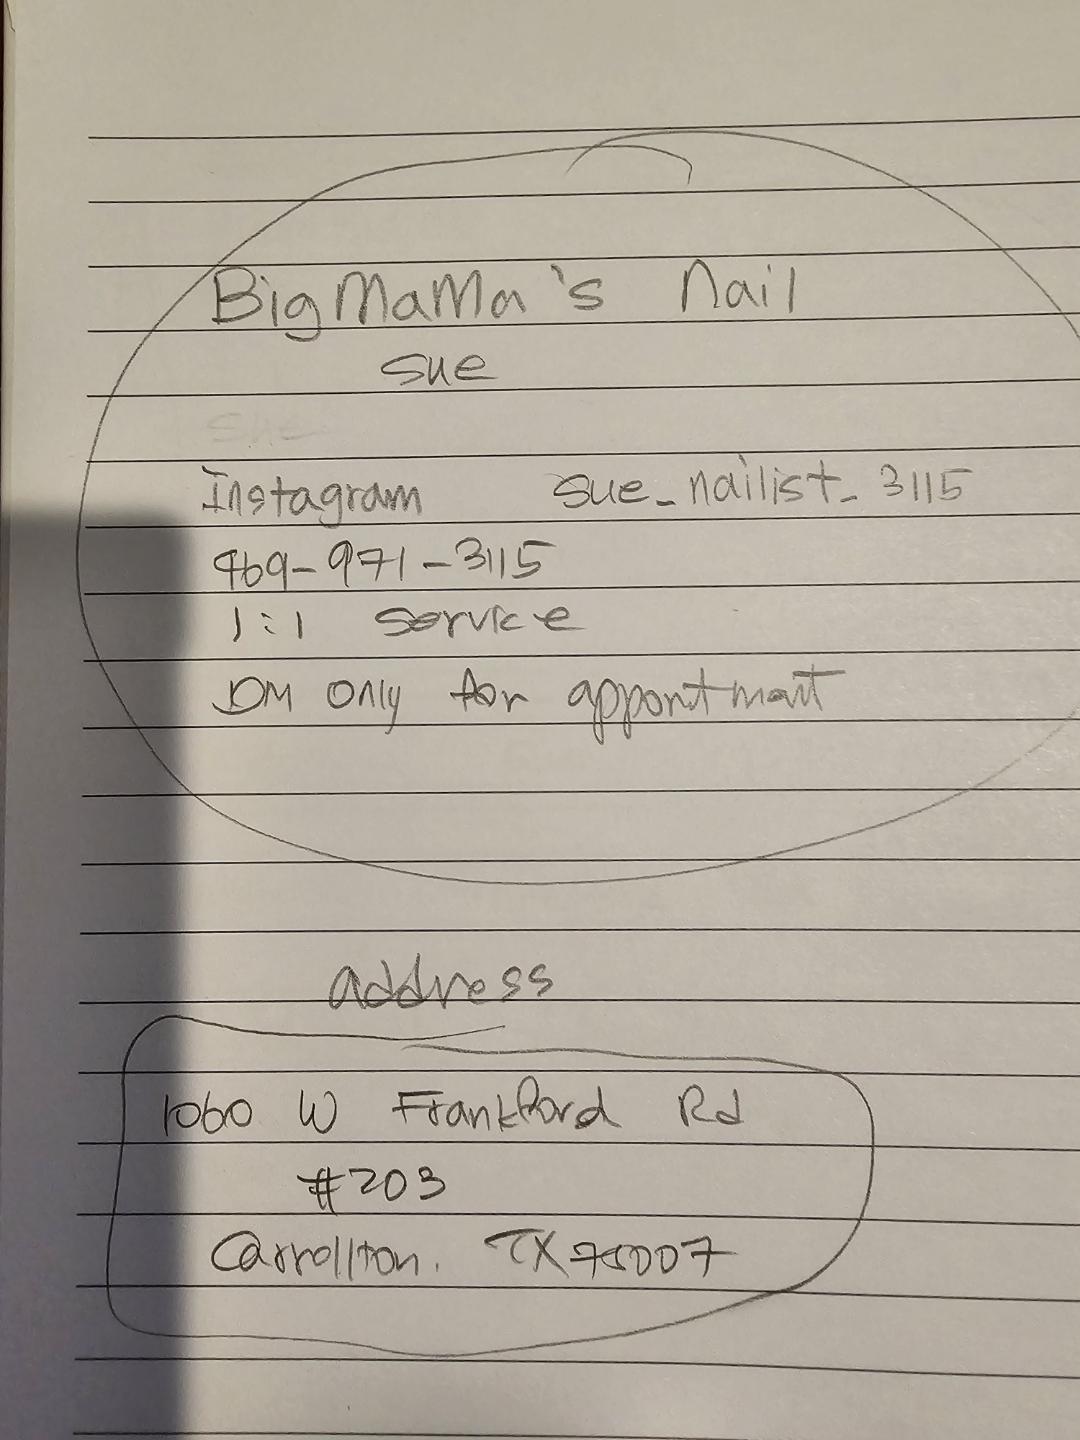 BigMaMa's Nail
sue
sue
Instagram sue_nailist_3115
469-971-3115
1:1 service
DM only for appointment
address
1060 W Frankford Rd
#203
Carrollton. TX 75007